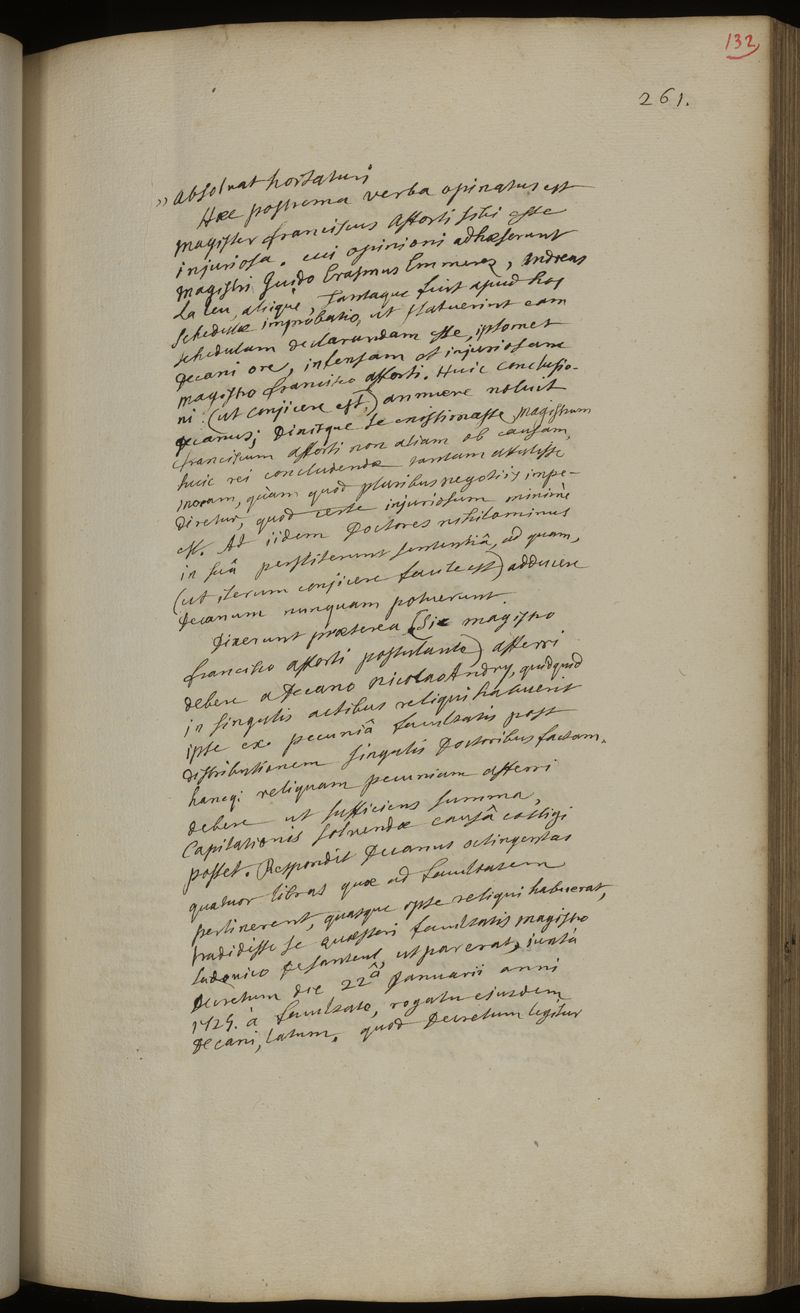 132
261.
„ absolvat hortaturi
Hæc postrema verba opinatus est
magister franciscus afforti sibi esse
injuriosa. cui opinioni adhæserunt
magistri Guido Erasmus Emmerez, Andreas
La leu, aliique, tantaque fuit apud hos
schedulæ improbatio, ut statuerint eam
schedulam declarandam esse, ipsomet
Decani ore, infensam et injuriosam
magistro francisco afforti. Huic conclusio-
ni (ut conjicere est,) annuere noluit
Decanus; Dixitque se existimasse magistrum
franciscum afforti non aliam ob causam,
huic rei concludendæ tantam attulisse
moram, quàm quod pluribus negotiis impe-
diretur, quod certe injuriosum minimè
est. At iidem Doctores nihilominus
in suâ perstiterunt sententiâ, ad quam,
(ut iterum conjicere facile est) adducere
Decanum nunquam potuerunt
Dixerunt præterea (sic magistro
francisco afforti postulante) afferri
debere a Decano nicolao Andry, quidquid
in singulis actibus reliqui habuerit
ipse ex pecuniâ facultatis post
distributionem singulis Doctoribus factam,
hancq; reliquam pecuniam afferri
debere ut sufficiens summa,
Capitationis solvendæ causâ colligi
posset. Respondit Decanus octingentas
quatuor libras quæ ad facultatem
pertinerent, quasque ipse reliqui habuerat,
tradidisse se quæstori facultatis magistro
Ludovico De santeul, ut pareret, iuxta
Decretum die 22â Januarii anni
1725. à facultate, rogatu ejusdem
Decani, latum, quod Decretum legitur